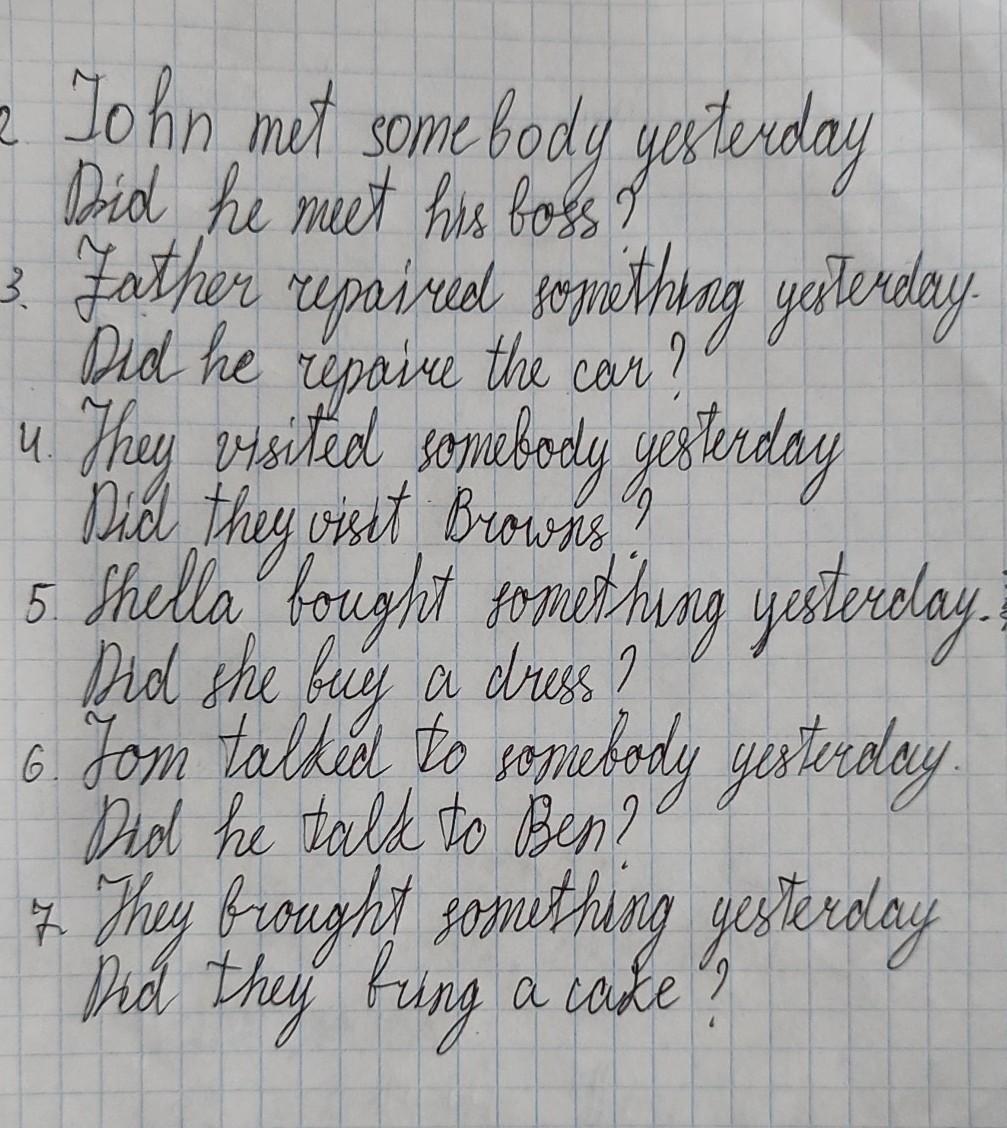 2. John met somebody yesterday
Did he meet his boss?
3. Father repaired something yesterday.
Did he repaire the car?
4. They visited somebody yesterday
Did they visit Browns?
5. Shella bought something yesterday.
Did she buy a dress?
6. Tom talked to somebody yesterday.
Did he talk to Ben?
7. They brought something yesterday
Did they bring a cake?